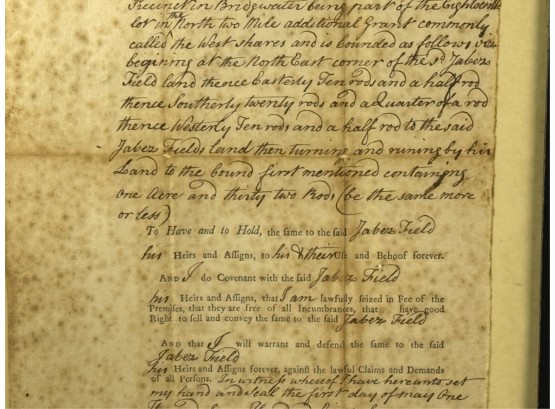 Precinct in Bridgewater being part of the Eighteenth
lot in the North two Mile additional Grant commonly
called the West shares and is bounded as follows viz
begining at the North East corner of the sd Jabez
Field land thence Easterly Ten rods and a half rod
thence Southerly twenty rods and a Quarter of a rod
thence Westerly Ten rods and a half rod to the said
Jabez Fields land then turning and runing by his
Land to the bound first mentioned containing
One Acre and thirty two Rods (be the same more
or less)
To Have and to Hold, the same to the said Jabez Field
his Heirs and Assigns, to his & their Use and Behoof forever.
AND I do Covenant with the said Jabez Field
his Heirs and Assigns, that I am lawfully seized in Fee of the
Premises, that they are free of all Incumbrances, that have good
Right to sell and convey the same to the said Jabez Field
AND that I will warrant and defend the same to the said
Jabez Field
his Heirs and Assigns forever, against the lawful Claims and Demands
of all Persons. In witness whereof I have hereunto set
my hand and seal the first day of may One